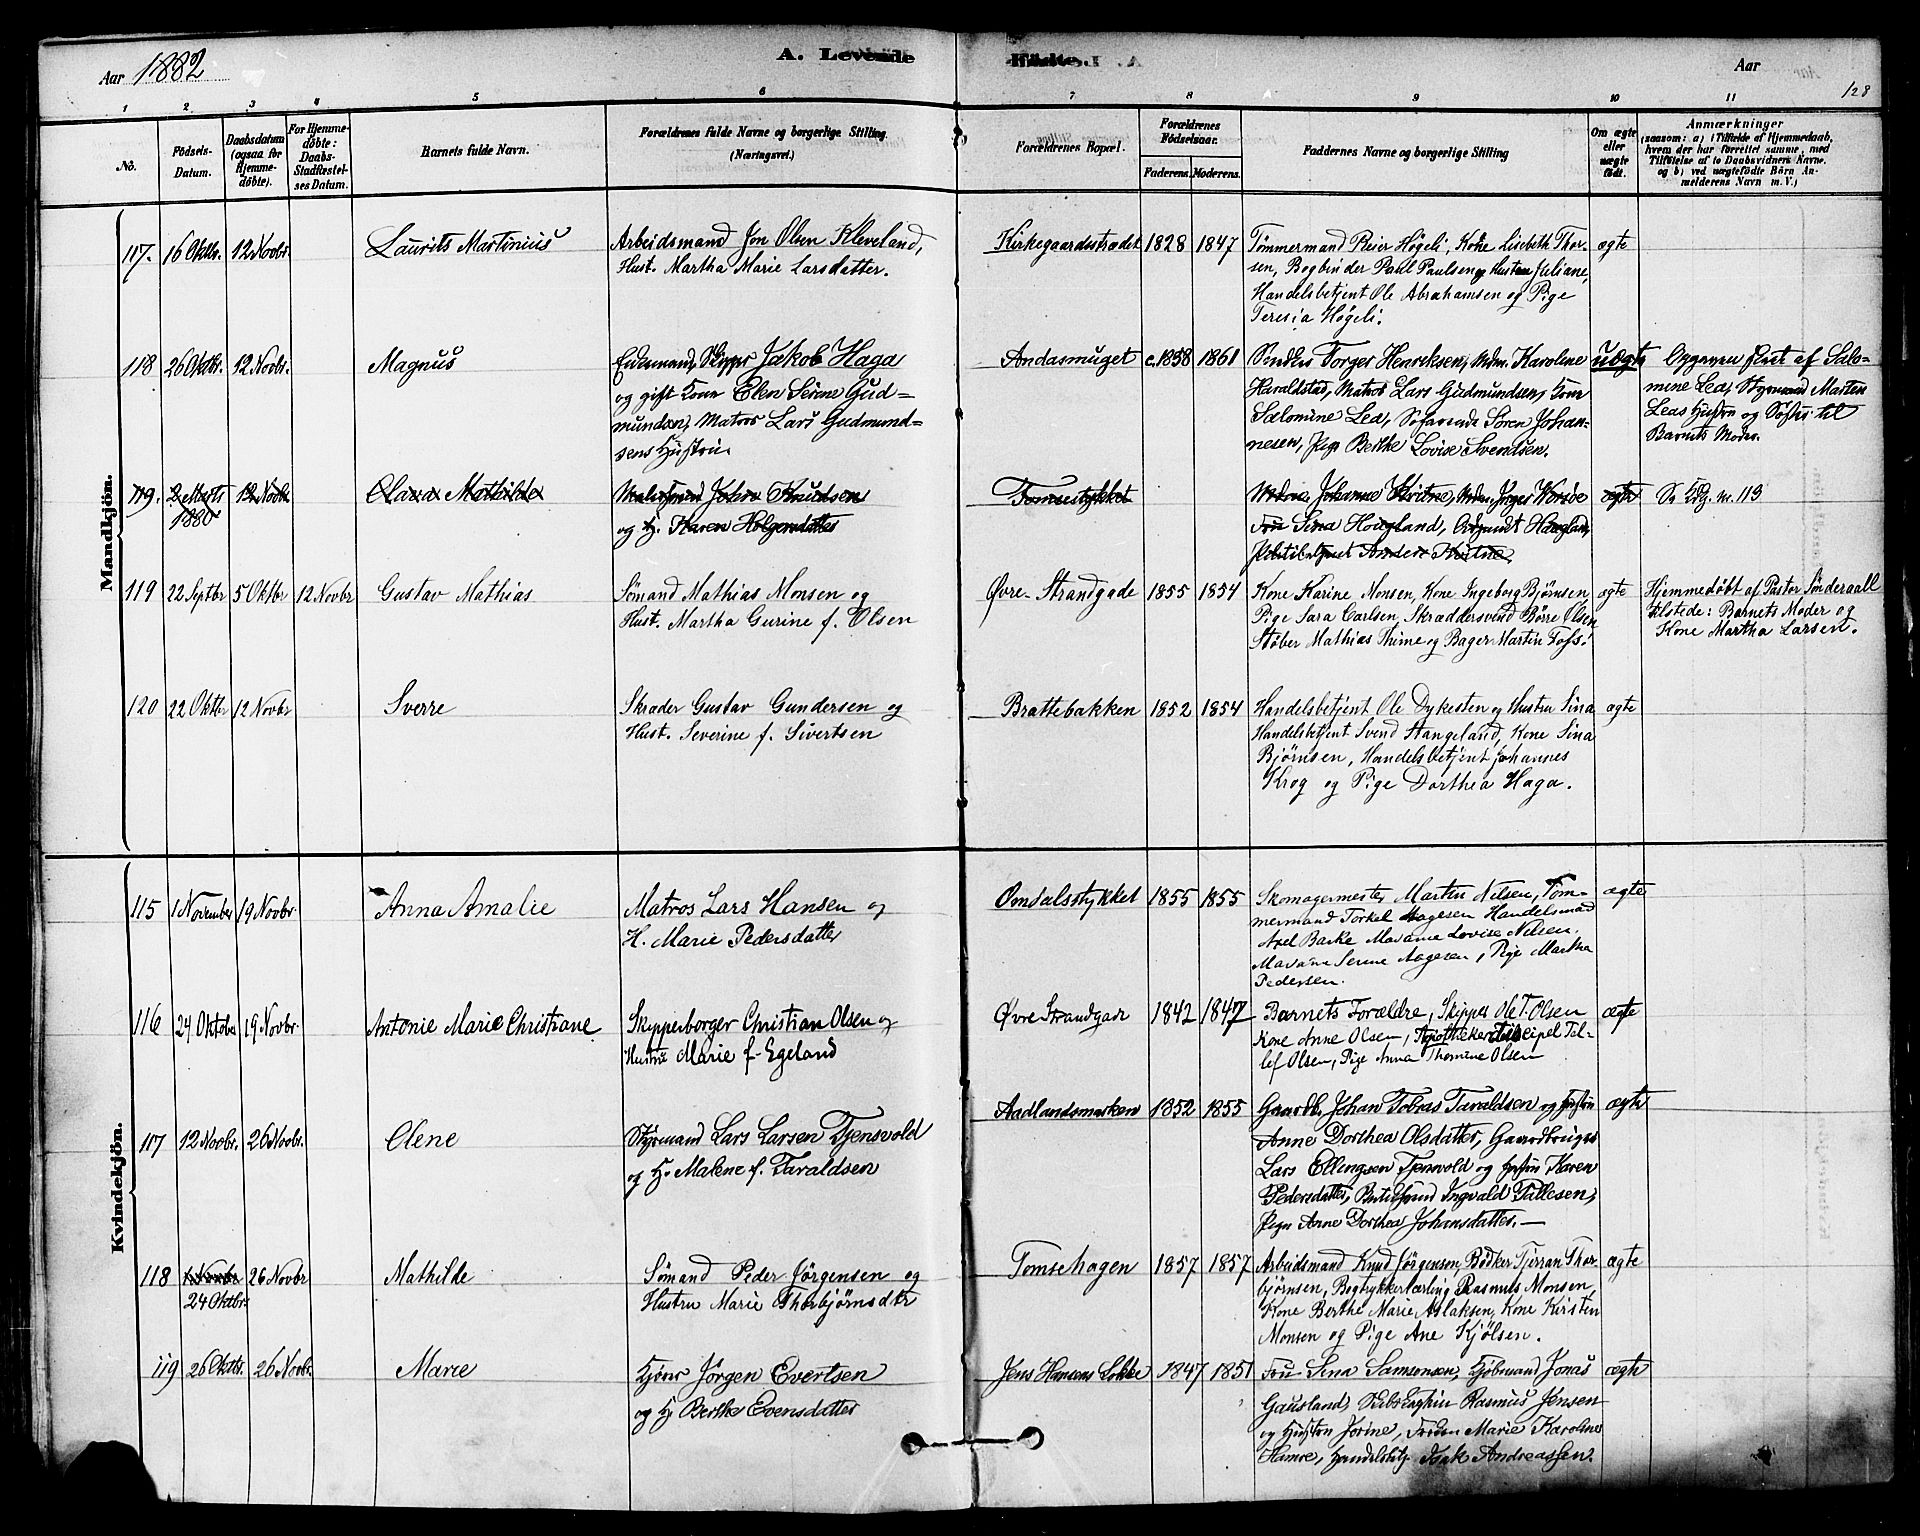 Aar 1882
A. Levende Fødte.
Aar
128
1 2 3 4 5 6 7 8 9 10 11
No.
Fødsels-Datum.
Daabsdatum (ogsaa for Hjemme-døbte).
For Hjemme-døbte: Daabs-Stadfæstel-ses Datum.
Barnets fulde Navn.
Forældrenes fulde Navne og borgerlige Stilling. (Næringsvei.)
Forældrenes Bopæl.
Forældrenes Fødselsaar.
Faderens. Moderens.
Faddernes Navne og borgerlige Stilling
Om ægte eller uægte født.
Anmærkninger
(saasom: a) i Tilfælde af Hjemmedaab, hvem der har forrettet samme, med Tilføielse af to Daabsvidners Navne. og b) ved uægtefødte Børn Anmelderens Navn m. V.)
Mandkjön.
117. 16 Oktbr. 12 Novbr. Laurits Martinius
Arbeidsmand Jon Olsen Kleveland,
Hust. Martha Marie Larsdatter.
Kirkegaardsstrædet 1828 1847
Tømmermand Reier Høgeli, Kone Lisebeth Thor-
sen, Bogbinder Paul Paulsen og Hustru Juliane,
Handelsbetjent Ole Abrahamsen og Pige
Teresia Høgeli.
ægte
118 26 Oktbr. 12 Novbr. Magnus
Enkemand, Skipper Jakob Haga
og gift Kone Elen Serine Gud-
mundsen, Matros Lars Gudmund-
sens Hustru.
Andasmuget c. 1838 1861
Torger Henriksen, Mdm. Karoline
Haraldstad, Matros Lars Gudmundsen, Kone
Salomine Lea, Søfarende Søren Johan-
nesen, Pige Berthe Lovise Svendsen.
uægte
Opgaven fra af Salo-
mine Lea, Styrmand Marten
Leas Hustru og Søster til
Barnets Moder.
119. 2 Marts 1880 12 Novbr Clara Mathilde
Malersvend John Knudsen
og H. Karen Holgersdatter
Tomsestykket
Madme Johanne Hvitne, Mdm. Inger Worsøe
Fru Sina Hougland,
Anders Hvitne
ægte
Se Kvg. n. 113
119 22 Septbr 5 Oktbr 12 Novbr Gustav Mathias
Sømand Mathias Monsen og
Hust. Martha Gurine f. Olsen
Øvre-Strandgade 1855 1854
Kone Karine Monsen, Kone Ingeborg Bjørnsen
Pige Sara Carlsen, Skræddersvend Børre Olsen
Støber Mathias Thime og Bager Martin Foss.
ægte
Hjemmedøbt af Pastor Sønderaall
tilstede: Barnets Moder og
Kone Martha Larsen.
120 22 Oktbr 12 Novbr Sverre
Skræder Gustav Gundersen og
Hust. Severine f. Sivertsen
Brattebakken 1852 1854
Handelsbetjent Ole Dykesten og Hustru Sina
Handelsbetjent Svend Stangeland, Kone Sina
Bjørnsen, Handelsbetjent Johannes
Krog og Pige Dorthea Haga.
ægte
Kvindekjön.
115 1 November 19 Novbr. Anna Amalie
Matros Lars Hansen og
H. Marie Pedersdatter
Omdalsstykket 1855 1855
Skomagermester Martin Nilsen, Tøm-
mermand Torkel Aagesen Handelsmand
Axel Barke Madame Lovise Nilsen.
Madame Serine Aagesen, Pige Martha
Pedersen.
ægte
116 24 Oktober 19 Novbr. Antonie Marie Christiane
Skipperborger Christian Olsen og
Hustru Marie f. Egeland
Øvre Strandgade 1842 1847
Barnets Forældre, Skipper Ole T. Olsen
Kone Anne Olsen, Apothekerdiscipel Tel-
lef Olsen, Pige Anna Thomine Olsen
ægte
117 12 Novbr. 26 Novbr. Olene
Styrmand Lars Larsen Tjensvold
og H. Malene f. Taraldsen
Aadlandsmarken 1852 1855
Gaardb. Johan Tobias Taraldsen og Hustru
Anne Dorthea Olsdatter, Gaardbruger
Lars Ellingsen Tjensvold og Hustru Karen
Pedersdatter, Ingvald Tallesen,
Pige Anne Dorthea Johansdatter.
ægte
118 1 Novbr 24 Oktbr. 26 Novbr Mathilde
Sømand Peder Jørgensen og
Hustru Marie Thorbjørnsdtr
Tomsehagen 1857 1857
Arbeidsmand Knud Jørgensen Bødker Tjerran Thor-
bjørnsen, Bogtrykkerlærling Rasmus Monsen,
Kone Berthe Marie Aslaksen, Kone Kirsten
Monsen og Pige Ane Kjølsen.
ægte
119 26 Oktbr. 26 Novbr. Marie
Jørgen Evertsen
og H. Berthe Evensdatter
Jens Hansens Løkke 1847 1851
Fru Sina Samsonsen, Kjøbmand Jonas
Gausland, Rasmus Jensen
og Hustru Jorine, Marie Karoline
Hamre, Handelsbtj. Isak Andreassen.
ægte